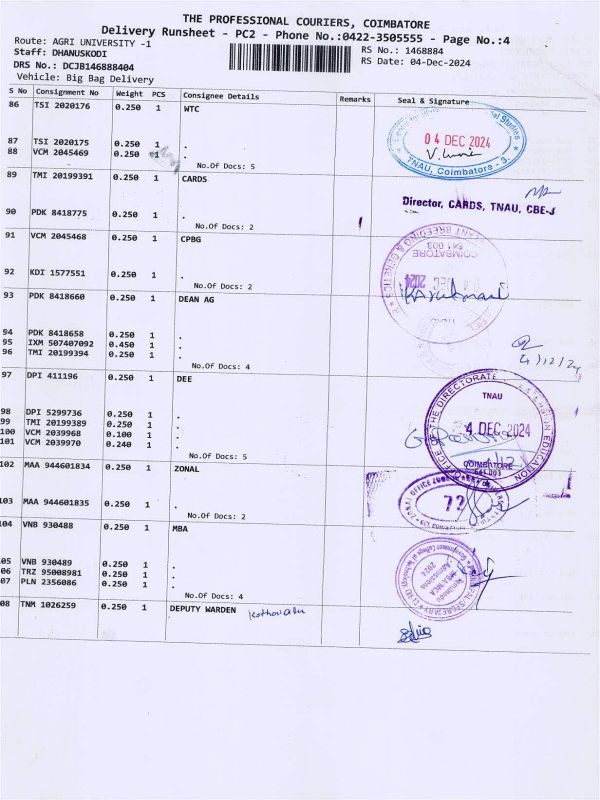 THE PROFESSIONAL COURIERS, COIMBATORE
Delivery Runsheet - PC2 - Phone No.:0422-3505555 - Page No.:4
Route: AGRI UNIVERSITY -1
RS No.: 1468884
Staff: DHANUSKODI
RS Date: 04-Dec-2024
DRS No.: DCJB146888404
Vehicle: Big Bag Delivery
S No Consignment No Weight PCS Consignee Details Remarks Seal & Signature
86 TSI 2020176 0.250 1 WTC
87 TSI 2020175 0.250 1 .
88 VCM 2045469 0.250 1 .
No.Of Docs: 5
04 DEC 2024
TNAU, Coimbatore - 3.
89 TMI 20199391 0.250 1 CARDS
Director, CARDS, TNAU, CBE-3
90 PDK 8418775 0.250 1 .
No.Of Docs: 2
91 VCM 2045468 0.250 1 CPBG
PLANT BREEDING & GENETICS
COIMBATORE
641 003
DEC 2024
92 KDI 1577551 0.250 1 .
No.Of Docs: 2
93 PDK 8418660 0.250 1 DEAN AG
94 PDK 8418658 0.250 1 .
95 IXM 507407092 0.450 1 .
96 TMI 20199394 0.250 1 .
No.Of Docs: 4
4/12/24
97 DPI 411196 0.250 1 DEE
OFFICE OF THE DIRECTORATE EXTENSION EDUCATION
TNAU
4 DEC 2024
COIMBATORE
641 003
98 DPI 5299736 0.250 1 .
99 TMI 20199389 0.250 1 .
100 VCM 2039968 0.100 1 .
101 VCM 2039970 0.240 1 .
No.Of Docs: 5
102 MAA 944601834 0.250 1 ZONAL
ZONAL OFFICE
72
103 MAA 944601835 0.250 1 .
No.Of Docs: 2
104 VNB 930488 0.250 1 MBA
05 VNB 930489 0.250 1 .
06 TRZ 95008981 0.250 1 .
07 PLN 2356086 0.250 1 .
No.Of Docs: 4
08 TNM 1026259 0.250 1 DEPUTY WARDEN